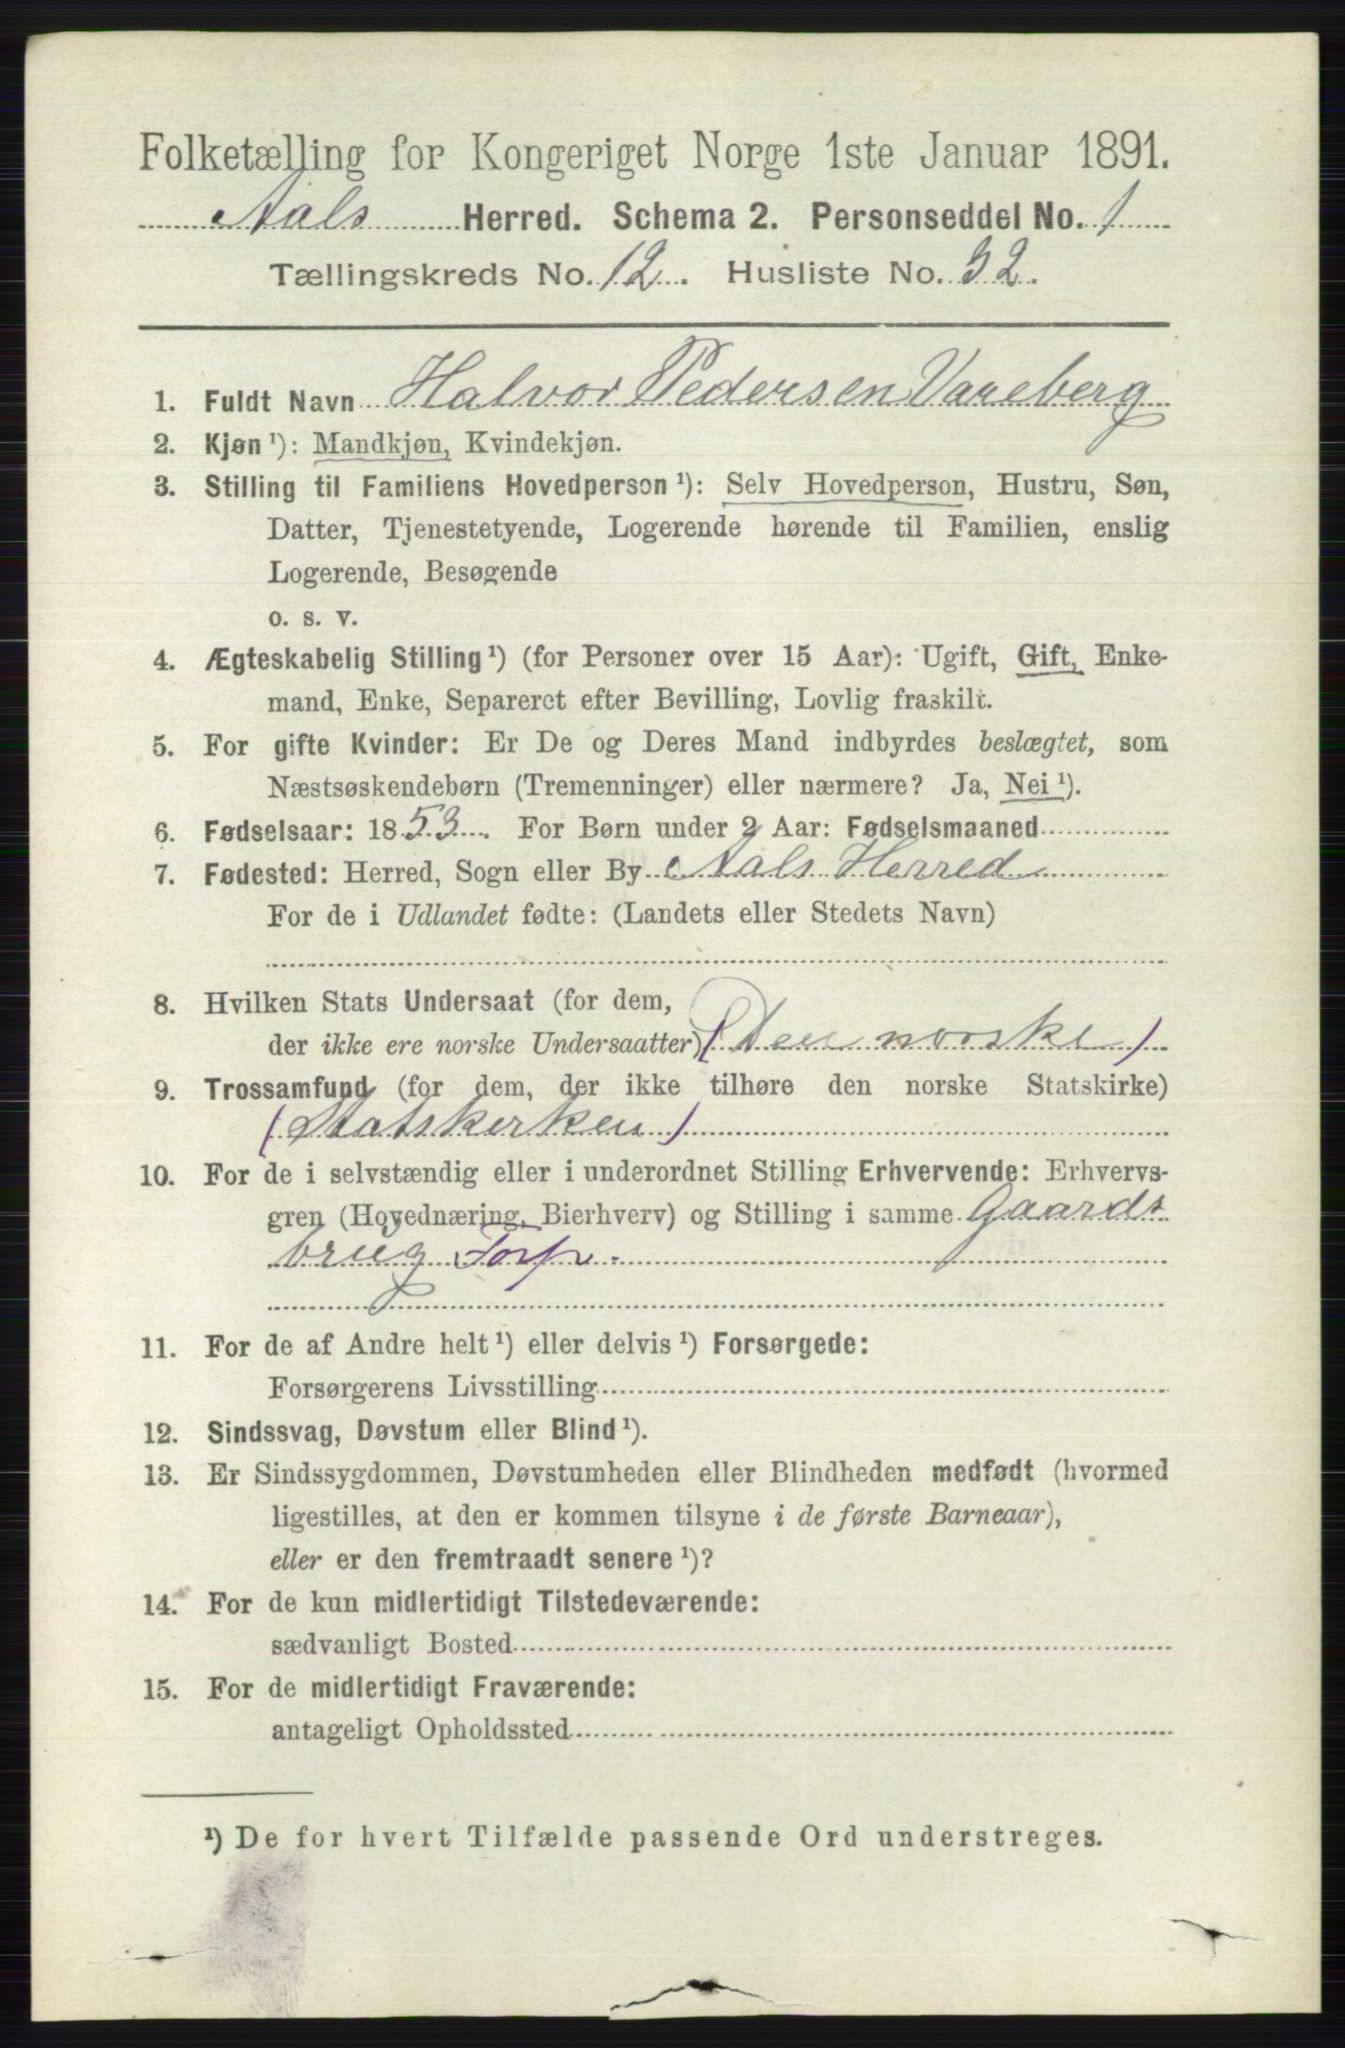 Folketælling for Kongeriget Norge 1ste Januar 1891.
Aals Herred. Schema 2. Personseddel No. 1
Tællingskreds No. 12. Husliste No. 32.
1. Fuldt Navn Halvor Pedersen Vareberg
2. Kjøn ¹): Mandkjøn, Kvindekjøn.
3. Stilling til Familiens Hovedperson ¹): Selv Hovedperson, Hustru, Søn,
Datter, Tjenestetyende, Logerende hørende til Familien, enslig
Logerende, Besøgende
o. s. v.
4. Ægteskabelig Stilling ¹) (for Personer over 15 Aar): Ugift, Gift, Enke-
mand, Enke, Separeret efter Bevilling, Lovlig fraskilt.
5. For gifte Kvinder: Er De og Deres Mand indbyrdes beslægtet, som
Næstsøskendebørn (Tremenninger) eller nærmere? Ja, Nei ¹).
6. Fødselsaar: 1853. For Børn under 2 Aar: Fødselsmaaned
7. Fødested: Herred, Sogn eller By Aals Herred
For de i Udlandet fødte: (Landets eller Stedets Navn)
8. Hvilken Stats Undersaat (for dem,
der ikke ere norske Undersaatter) (Den norske)
9. Trossamfund (for dem, der ikke tilhøre den norske Statskirke)
(Statskerken)
10. For de i selvstændig eller i underordnet Stilling Erhvervende: Erhvervs-
gren (Hovednæring, Bierhverv) og Stilling i samme Gaards
brug Torp.
11. For de af Andre helt ¹) eller delvis ¹) Forsørgede:
Forsørgerens Livsstilling
12. Sindssvag, Døvstum eller Blind ¹).
13. Er Sindssygdommen, Døvstumheden eller Blindheden medfødt (hvormed
ligestilles, at den er kommen tilsyne i de første Barneaar),
eller er den fremtraadt senere ¹)?
14. For de kun midlertidigt Tilstedeværende:
sædvanligt Bosted
15. For de midlertidigt Fraværende:
antageligt Opholdssted
¹) De for hvert Tilfælde passende Ord understreges.